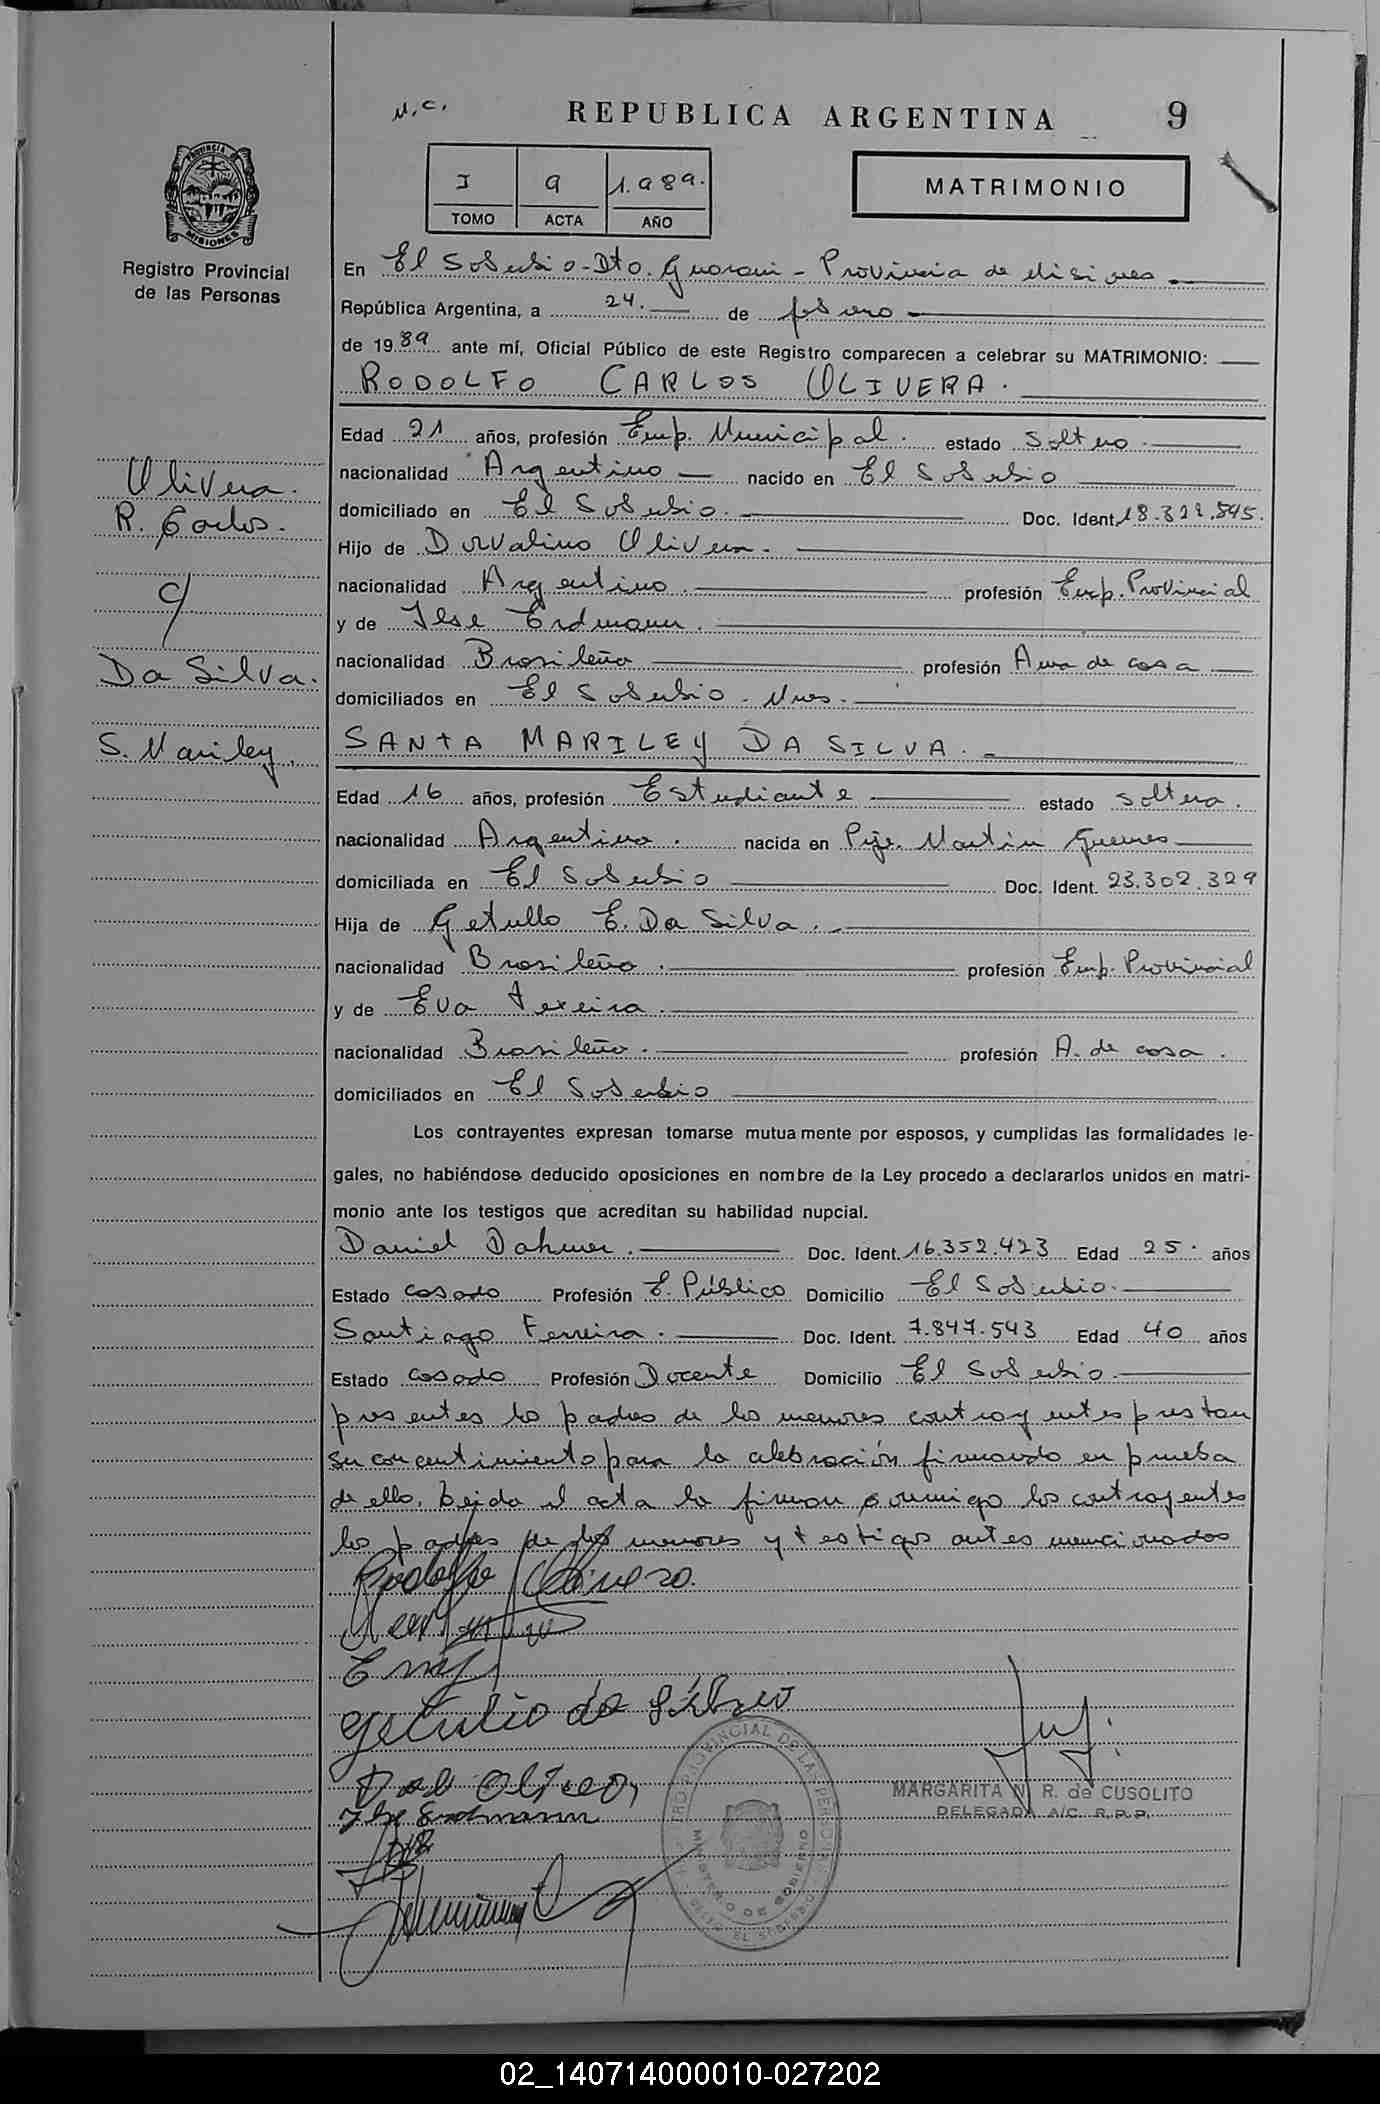 u.c. REPUBLICA ARGENTINA 9
PROVINCIA DE MISIONES
Registro Provincial
de las Personas
I 9 1.989.
TOMO ACTA AÑO
MATRIMONIO
En El Soberbio-Dto. Guarani - Provincia de Misiones
República Argentina, a 24. de febrero
de 1989 ante mí, Oficial Público de este Registro comparecen a celebrar su MATRIMONIO:
RODOLFO CARLOS OLIVERA.
Edad 21 años, profesión Emp. Municipal. estado soltero.
nacionalidad Argentino nacido en El Soberbio
domiciliado en El Soberbio. Doc. Ident. 18.322.845.
Hijo de Dorvalino Olivera.
nacionalidad Argentino. profesión Emp. Provincial
y de Ilse Erdmann.
nacionalidad Brasileña profesión Ama de casa
domiciliados en El Soberbio - Mnes.
Olivera.
R. Carlos.
c/
Da Silva.
S. Mariley.
SANTA MARILEY DA SILVA.
Edad 16 años, profesión Estudiante estado soltera.
nacionalidad Argentina. nacida en Pje. Martin Guemes
domiciliada en El Soberbio Doc. Ident. 23.302.329
Hija de Getullo E. Da Silva.
nacionalidad Brasileño. profesión Emp. Provincial
y de Eva Texeira.
nacionalidad Brasileña. profesión A. de casa.
domiciliados en El Soberbio
Los contrayentes expresan tomarse mutuamente por esposos, y cumplidas las formalidades le-
gales, no habiéndose deducido oposiciones en nombre de la Ley procedo a declararlos unidos en matri-
monio ante los testigos que acreditan su habilidad nupcial.
Daniel Dahmer. Doc. Ident. 16.352.423 Edad 25. años
Estado casado Profesión E. Público Domicilio El Soberbio.
Santiago Ferreira. Doc. Ident. 7.847.543 Edad 40 años
Estado casado Profesión Docente Domicilio El Soberbio.
presentes los padres de los menores contrayentes prestan
su concentimiento para la celebración firmando en prueba
de ello. Leida el acta la firman conmigo los contrayentes
los padres de los menores y testigos antes mencionados
Rodolfo Olivera.
Getulio da Silva
Ilse Erdmann
MARGARITA N. R. de CUSOLITO
DELEGADA A/C. R.P.P.
REGISTRO PROVINCIAL DE LAS PERSONAS
MINISTERIO DE GOBIERNO
EL SOBERBIO
02_140714000010-027202